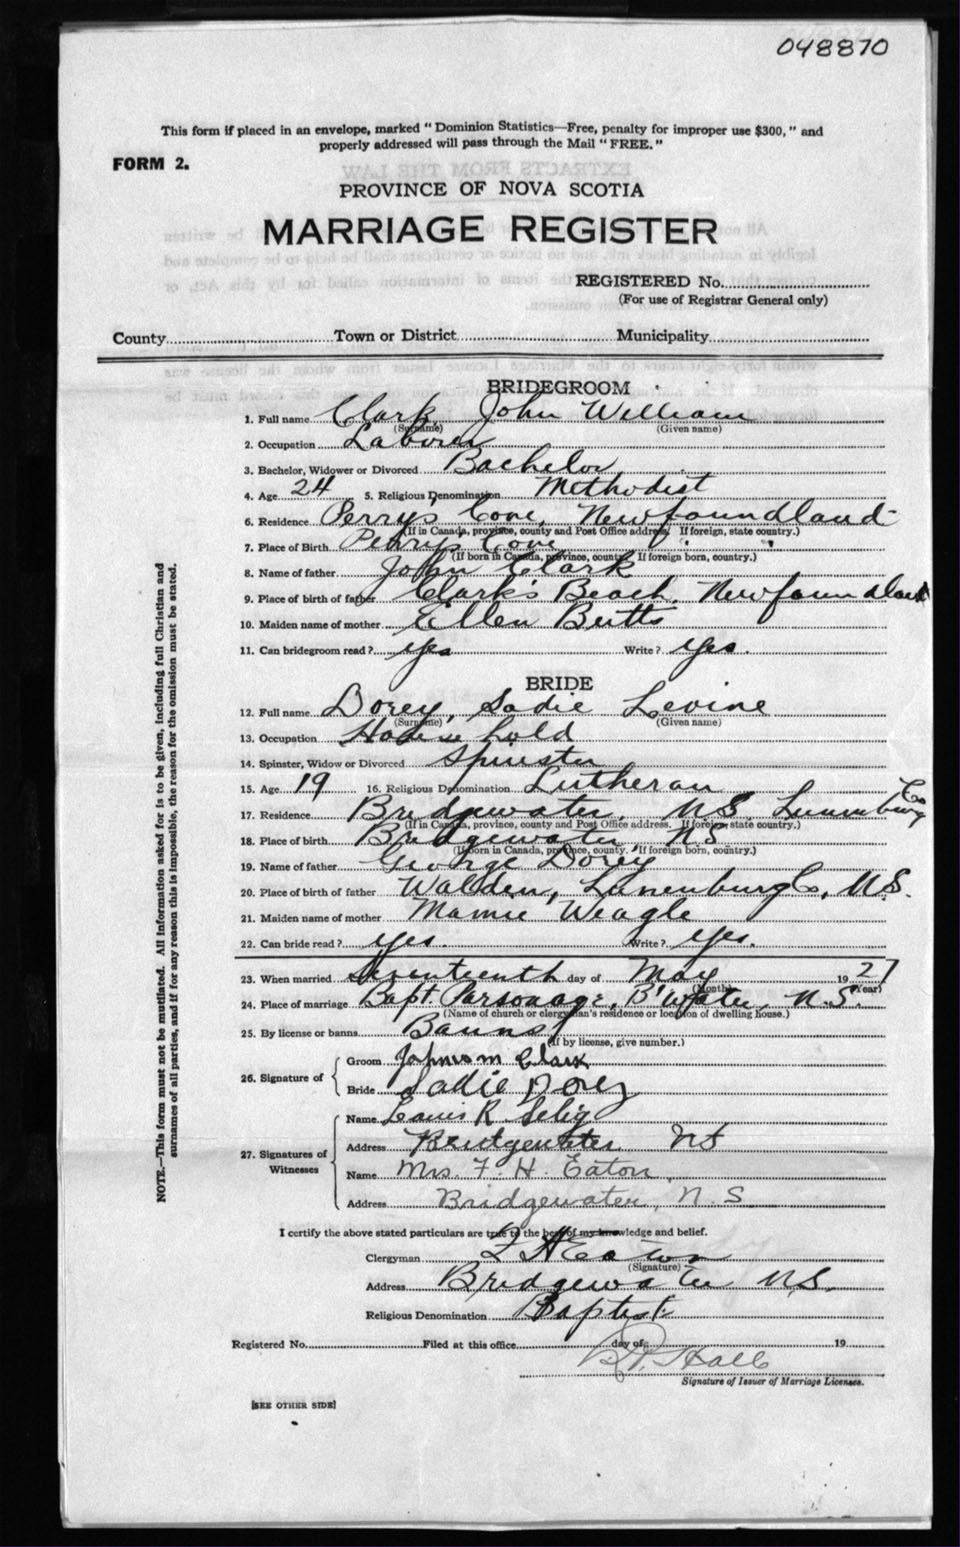 048870
This form if placed in an envelope, marked " Dominion Statistics—Free, penalty for improper use $300, " and
properly addressed will pass through the Mail " FREE. "
FORM 2.
PROVINCE OF NOVA SCOTIA
MARRIAGE REGISTER
REGISTERED No.
(For use of Registrar General only)
County Town or District Municipality
BRIDEGROOM
1. Full name Clark, John William
(Surname) (Given name)
2. Occupation Laborer
3. Bachelor, Widower or Divorced Bachelor
4. Age 24 5. Religious Denomination Methodist
6. Residence Perry's Cove, Newfoundland
(If in Canada, province, county and Post Office address. If foreign, state country.)
7. Place of Birth Perry's Cove
(If born in Canada, province, county. If foreign born, country.)
8. Name of father John Clark
9. Place of birth of father Clark's Beach, Newfoundland
10. Maiden name of mother Ellen Butts
11. Can bridegroom read ? yes Write ? yes.
BRIDE
12. Full name Dorey, Sadie Levine
(Surname) (Given name)
13. Occupation Household
14. Spinster, Widow or Divorced Spinster
15. Age 19 16. Religious Denomination Lutheran
17. Residence Bridgewater, N.S. Lunenburg Co
(If in Canada, province, county and Post Office address. If foreign state country.)
18. Place of birth Bridgewater N.S
(If born in Canada, province, county. If foreign born, country.)
19. Name of father George Dorey
20. Place of birth of father Walden, Lunenburg Co, N.S.
21. Maiden name of mother Mamie Weagle
22. Can bride read ? yes. Write ? yes.
23. When married Seventeenth day of May 1927
(Month) (Year)
24. Place of marriage Bapt. Parsonage, B'water, N.S.
(Name of church or clergyman's residence or location of dwelling house.)
25. By license or banns Banns
(If by license, give number.)
26. Signature of Groom Clark
Bride Sadie Dorey
27. Signatures of Witnesses Name Louis R Selig
Address Bridgewater NS
Name Mrs. F. H. Eaton
Address Bridgewater, N. S
I certify the above stated particulars are true to the best of my knowledge and belief.
Clergyman F H Eaton
(Signature)
Address Bridgewater N.S.
Religious Denomination Baptist
Registered No. Filed at this office day of 19
Hall
Signature of Issuer of Marriage Licenses.
[SEE OTHER SIDE]
NOTE.—This form must not be mutilated. All information asked for is to be given, including full Christian and
surnames of all parties, and if for any reason this is impossible, the reason for the omission must be stated.